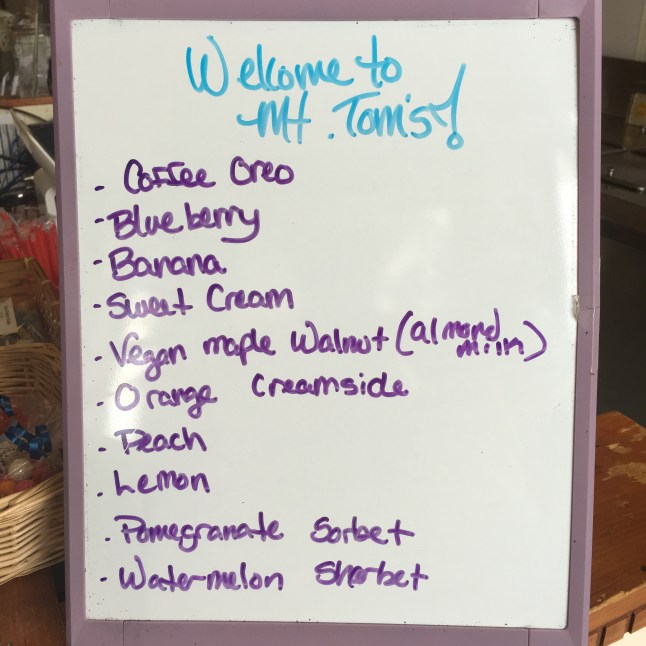 Welcome to
Mt. Tom's!
- Coffee Oreo
- Blueberry
- Banana
- Sweet Cream
- Vegan maple Walnut (almond milk)
- Orange Creamside
- Peach
- Lemon
- Pomegranate Sorbet
- Watermelon Sherbet